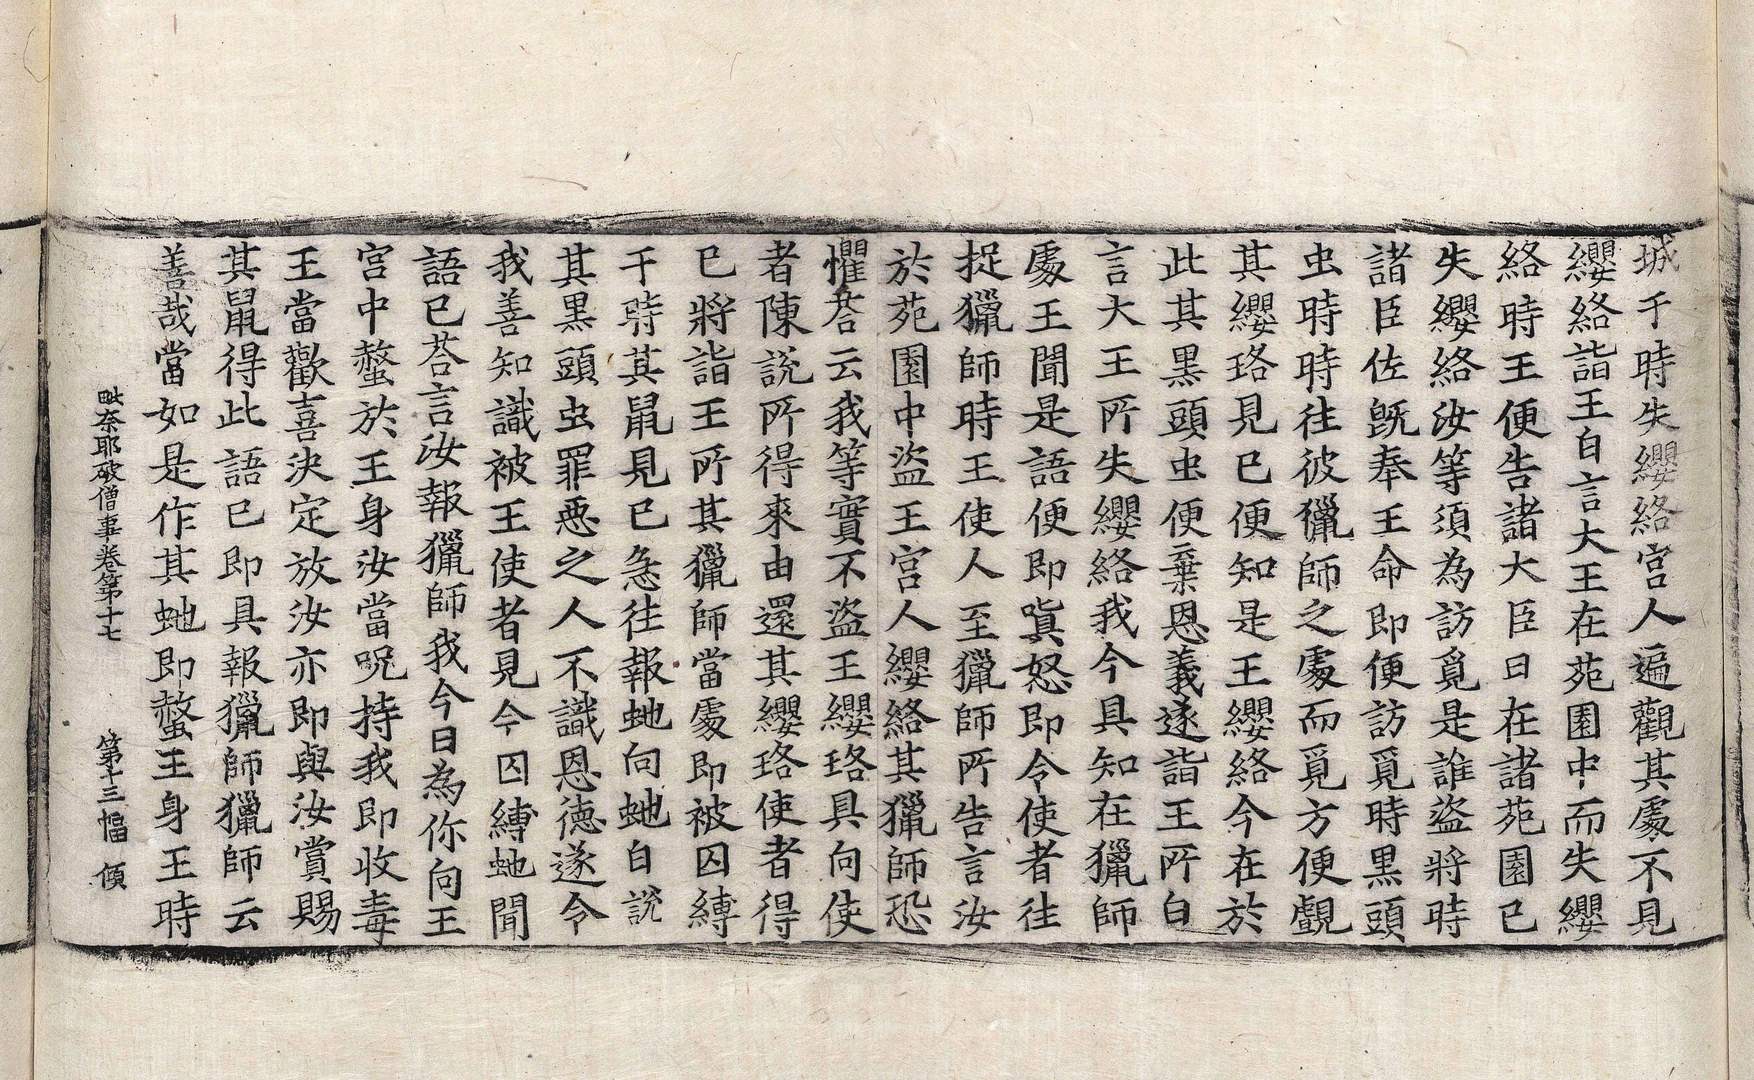 城于時失纓絡宮人遍觀其處不見
纓絡詣王白言大王在苑園中而失纓
絡時王便告諸大臣曰在諸苑園已
失纓絡汝等須為訪覓是誰盜將時
諸臣佐既奉王命即便訪覓時黑頭
虫時時往彼獵師之處而覓方便覷
其纓珞見已便知是王纓絡今在於
此其黑頭虫便棄恩義遂詣王所白
言大王所失纓絡我今具知在獵師
處王聞是語便即嗔怒即令使者往
捉獵師時王使人至獵師所告言汝
於苑園中盜王宮人纓絡其獵師恐
懼荅云我等實不盜王纓珞具向使
者陳說所得來由還其纓珞使者得
已將詣王所其獵師當處即被囚縛
于時其鼠見已急往報虵向虵白說
其黑頭虫罪惡之人不識恩德遂令
我善知識被王使者見今囚縛虵聞
語已荅言汝報獵師我今日為你向王
宮中螫於王身汝當呪持我即收毒
王當歡喜決定放汝亦即與汝賞賜
其鼠得此語已即具報獵師獵師云
善哉當如是作其虵即螫王身王時
毗奈耶破僧事卷第十七 第十三幅 傾